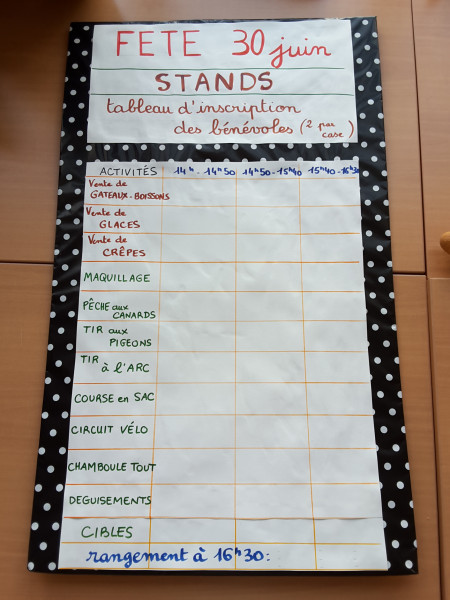 FETE 30 juin
STANDS
tableau d'inscription
des bénévoles (2 par case)
ACTIVITÉS 14h - 14h50 14h50 - 15h40 15h40 - 16h30
Vente de
GATEAUX - BOISSONS
Vente de
GLACES
Vente de
CRÊPES
MAQUILLAGE
PÊCHE aux
CANARDS
TIR aux
PIGEONS
TIR
à l'ARC
COURSE en SAC
CIRCUIT VÉLO
CHAMBOULE TOUT
DEGUISEMENTS
CIBLES
rangement à 16h30: